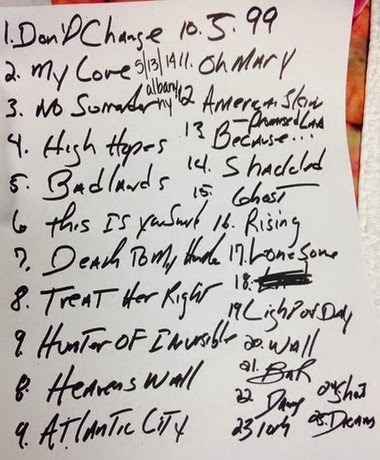 1. Don't Change 10.5.99
2. My Love 5/13/14 11. Oh Mary
albany ny
3. No Surrender 12 American Skin
Promised Land
4. High Hopes 13. Because...
5. Badlands 14. Shackled
15. Ghost
6 This Is Your Sword 16. Rising
7. Death To My Home 17. Lonesome
18.
8. Treat Her Right 19 Light Of Day
9. Hunter Of Invisible 20. Wall
21. Bad
8. Heavens Wall 22. Danc 24 Shout
9. Atlantic City 23 10th 25. Dream